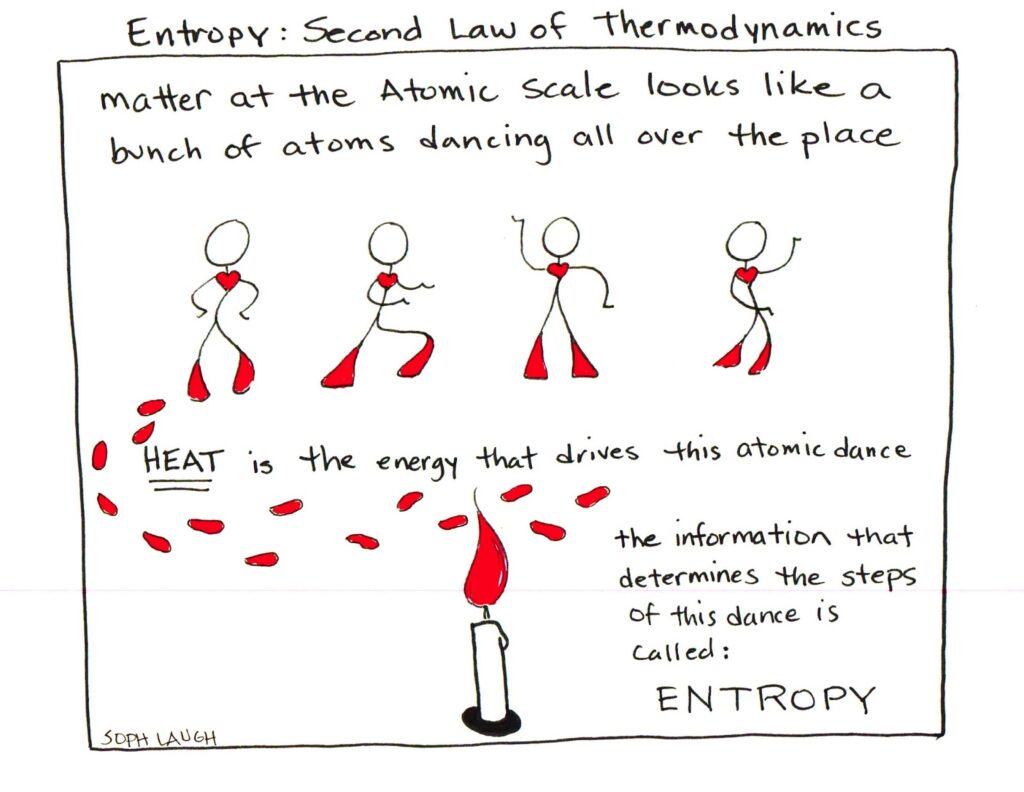 Entropy: Second Law of Thermodynamics
matter at the Atomic Scale looks like a
bunch of atoms dancing all over the place
HEAT is the energy that drives this atomic dance
the information that
determines the steps
of this dance is
called:
ENTROPY
SOPH LAUGH